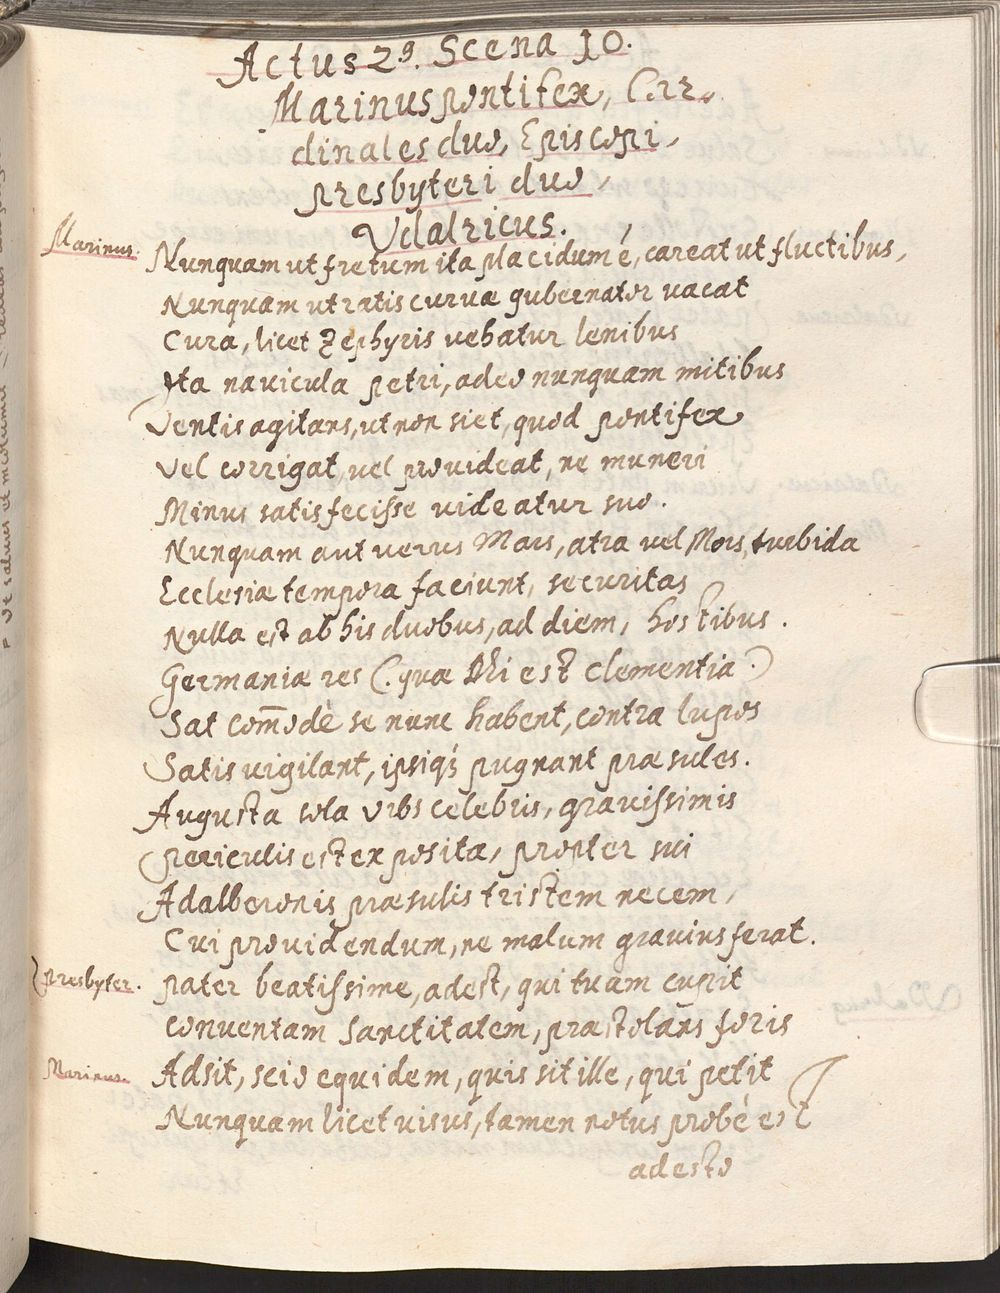 Actus 2⁹. Scena 10.
Marinus pontifex, Car-
dinales duo, Episcopi,
presbyteri duo,
Vdalricus.
Marinus. Nunquam ut fretum ita placidum é, careat ut fluctibus,
Nunquam ut ratis curuæ gubernator uacat
Cura, licet Zephyris vehatur lenibus
Ita nauicula petri, adeo nunquam mitibus
Ventis agitans, ut non siet, quod pontifex
Vel corrigat, vel prouideat, ne muneri
Minus satisfecisse uideatur suo.
Nunquam aut uerus Mars, atra vel Mors, turbida
Ecclesiæ tempora faciunt, securitas
Nulla est ab his duobus, ad diem, hostibus.
Germaniæ res (. quæ Dei est clementia .)
Sat com̄odè se nunc habent, contra lupos
Satis uigilant, ipsiq́; pugnant præsules.
Augusta sola Vrbs celebris, grauissimis
periculis est exposita, propter sui
Adalberonis præsulis tristem necem,
Cui prouidendum, ne malum grauius ferat.
presbyter. pater beatissime, adest, qui tuam cupit
conuentam Sanctitatem, præstolans foris
Marinus. Adsit, scio equidem, quis sit ille, qui petit
Nunquam licet uisus, tamen notus probè est
adesto